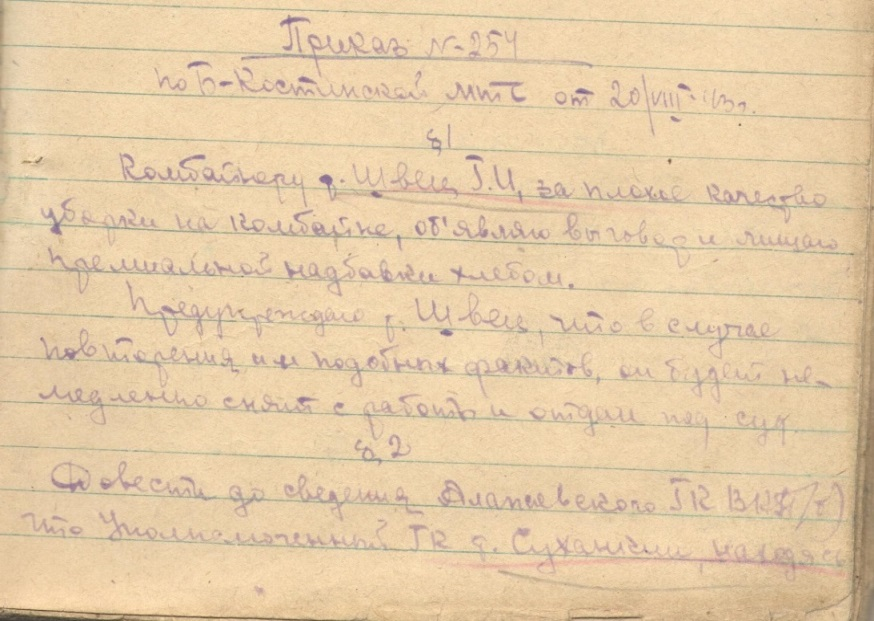 Приказ N-254
по Б-Костинской МТС от 20/VIII-43г.
§1
Комбайнеру т. Швец Г.И, за плохое качество
уборки на комбайне, об'являю выговор и лишаю
премиальной надбавки хлебом.
Предупреждаю т. Швец, что в случае
повторения им подобных фактов, он будет не-
медленно снят с работы и отдан под суд.
§2
Довести до сведения Алапаевского ГК ВКП/б)
что Уполномоченный ГК т. Суханкин, находясь